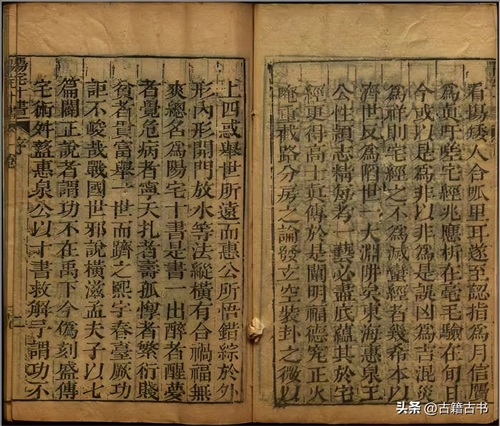 看場矮人合呱里耳遂至認指為月信陽
為真吁嗟宅經兆應析在毫毛驗在旬日
今或以是為非以非為是誤凶為吉混災
為祥則宅經之不為滅蠻經者幾希本以
濟世反為陋世一大淵阱矣東海惠泉王
公性穎志精殆考一藝必盡底蘊其於宅
經更得高士真傳於是闡明福德宅正火
庵直截路分房之論發立空裝卦之微以
上四或舉世所遠而惠公所悟錯綜於外
形內形開門放水等法縱橫有合禍福無
爽總名為陽宅十書是書一出醉者醒夢
者覺危病者寧夭扎者壽孤惸者繁衍賤
貧者貴富舉一世而躋之熙宇春臺厥功
詎不峻哉戰國世邪說橫滋孟夫子以七
篇闢正說者謂功不在禹下今為刻盛傳
宅術舛盭惠泉公以十書救解予謂功不
陽宅十書
頭条 @古籍古书